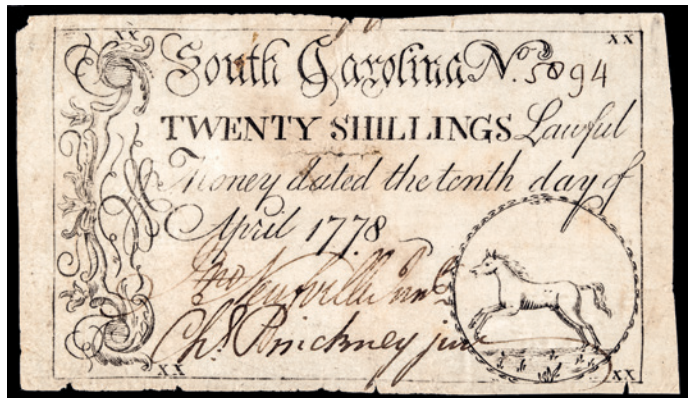 XX XX
South Carolina No. 5894
TWENTY SHILLINGS Lawful
Money dated the tenth day of
April 1778
Jno Neufville junr
Chs. Pinckney junr
XX XX